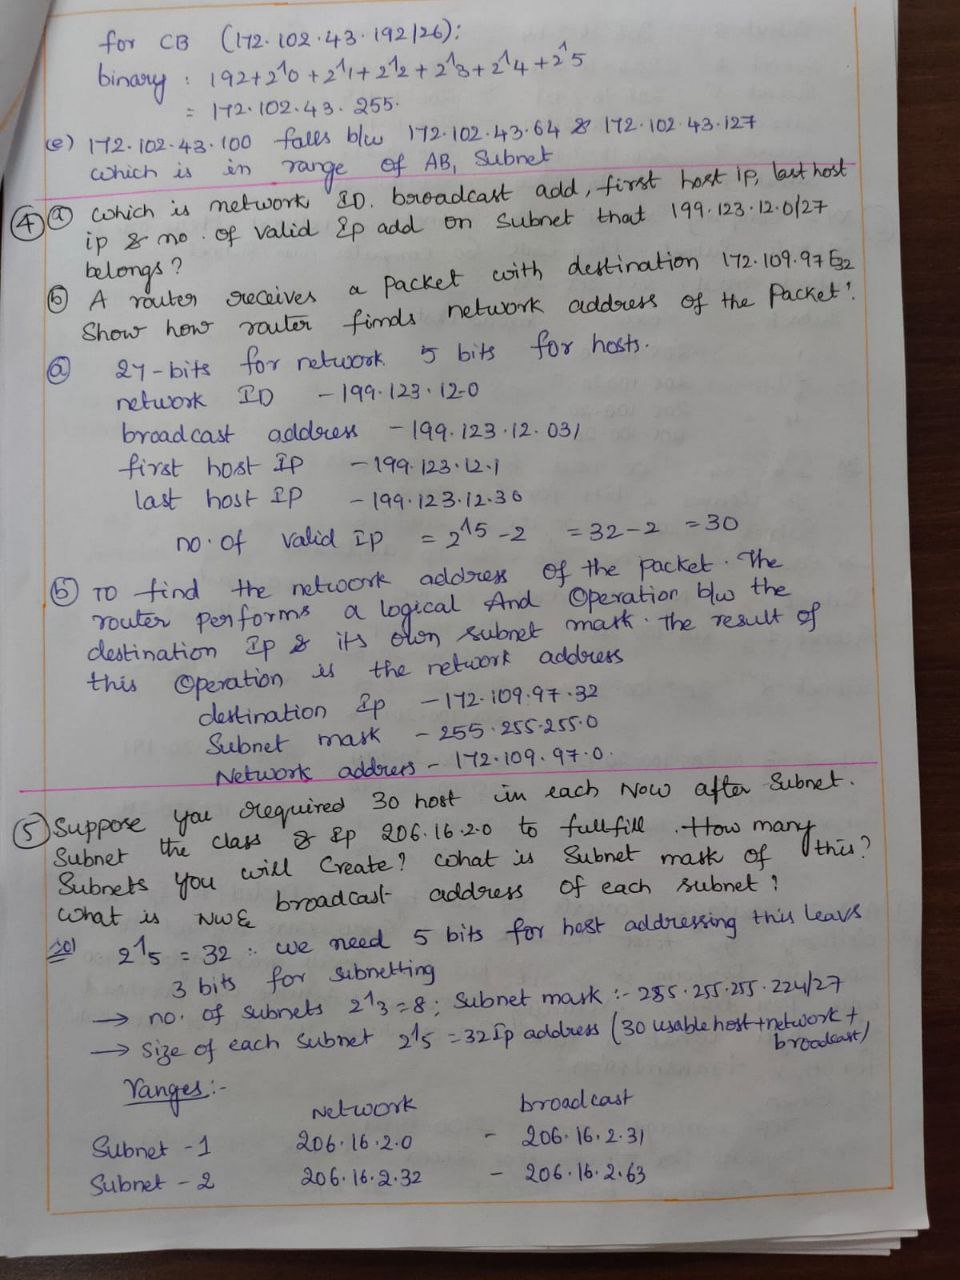 for CB (172.102.43.192/26):
binary : 192+2^0+2^1+2^2+2^3+2^4+2^5
= 172.102.43.255.
(e) 172.102.43.100 falls b/w 172.102.43.64 & 172.102.43.127
which is in range of AB, Subnet
④ ⓐ Which is network ID. broadcast add, first host ip, last host
ip & no. of valid Ip add on Subnet that 199.123.12.0/27
belongs?
ⓑ A router receives a packet with destination 172.109.97.32
Show how router finds network address of the Packet?
ⓐ 27-bits for network 5 bits for hosts.
network ID - 199.123.12.0
broadcast address - 199.123.12.031
first host IP - 199.123.12.1
last host IP - 199.123.12.30
no. of valid Ip = 2^5-2 = 32-2 = 30
ⓑ To find the network address of the packet. The
router performs a logical And Operation b/w the
destination Ip & its own subnet mask. the result of
this Operation is the network address
destination Ip - 172.109.97.32
Subnet mask - 255.255.255.0
Network address - 172.109.97.0.
⑤ Suppose you required 30 host in each Now after Subnet.
Subnet the class & Ip 206.16.2.0 to fullfill. How many
Subnets you will Create? What is Subnet mask of this?
What is NW& broadcast address of each subnet?
2^5 = 32 : we need 5 bits for host addressing this leavs
3 bits for sibnetting
→ no. of subnets 2^3=8; Subnet mask :- 285.255.255.224/27
→ Size of each Subnet 2^5 = 32Ip address (30 usable host+network+
broadcast)
ranges:-
Network broadcast
Subnet -1 206.16.2.0 - 206.16.2.31
Subnet - 2 206.16.2.32 - 206.16.2.63